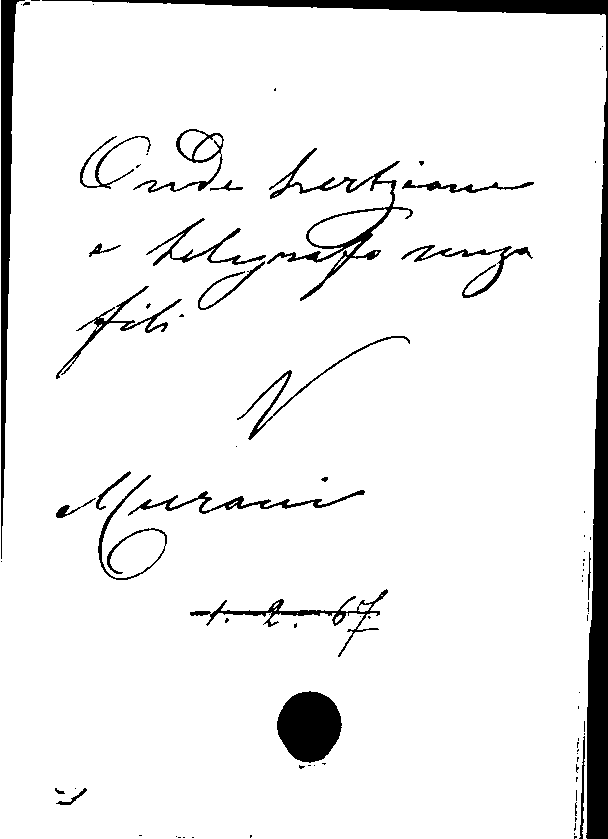 Onde hertziane
e telegrafo senza
fili
V
Murani
1. 2. 67